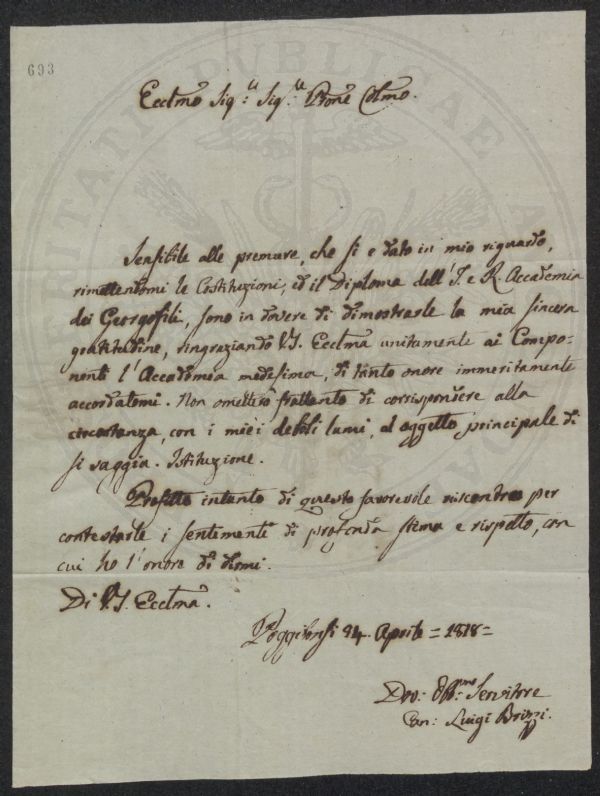 693
Ecclmo Sig.re Sig.re Prone Colmo.
Sensibile alle premure, che si è dato in mio riguardo,
rimettendomi le Costituzioni, ed il Diploma dell'I. e R. Accademia
dei Georgofili, sono in dovere di dimostrarle la mia sincera
gratitudine, ringraziando V.S. Ecclma unitamente ai Compo-
nenti l'Accademia medesima, di tanto onore immeritamente
accordatomi. Non ometterò frattanto di corrispondere alla
circostanza, con i miei deboli lumi, al oggetto principale di
sì saggia Istituzione.
Profitto intanto di questo favorevole riscontro per
contestarle i sentimenti di profonda stima e rispetto, con
cui ho l'onore di dirmi.
Di V.S. Ecclma.
Poggibonsi 24. Aprile = 1818 =
Dev: Obb.mo Servitore
Can: Luigi
PUBLICAE